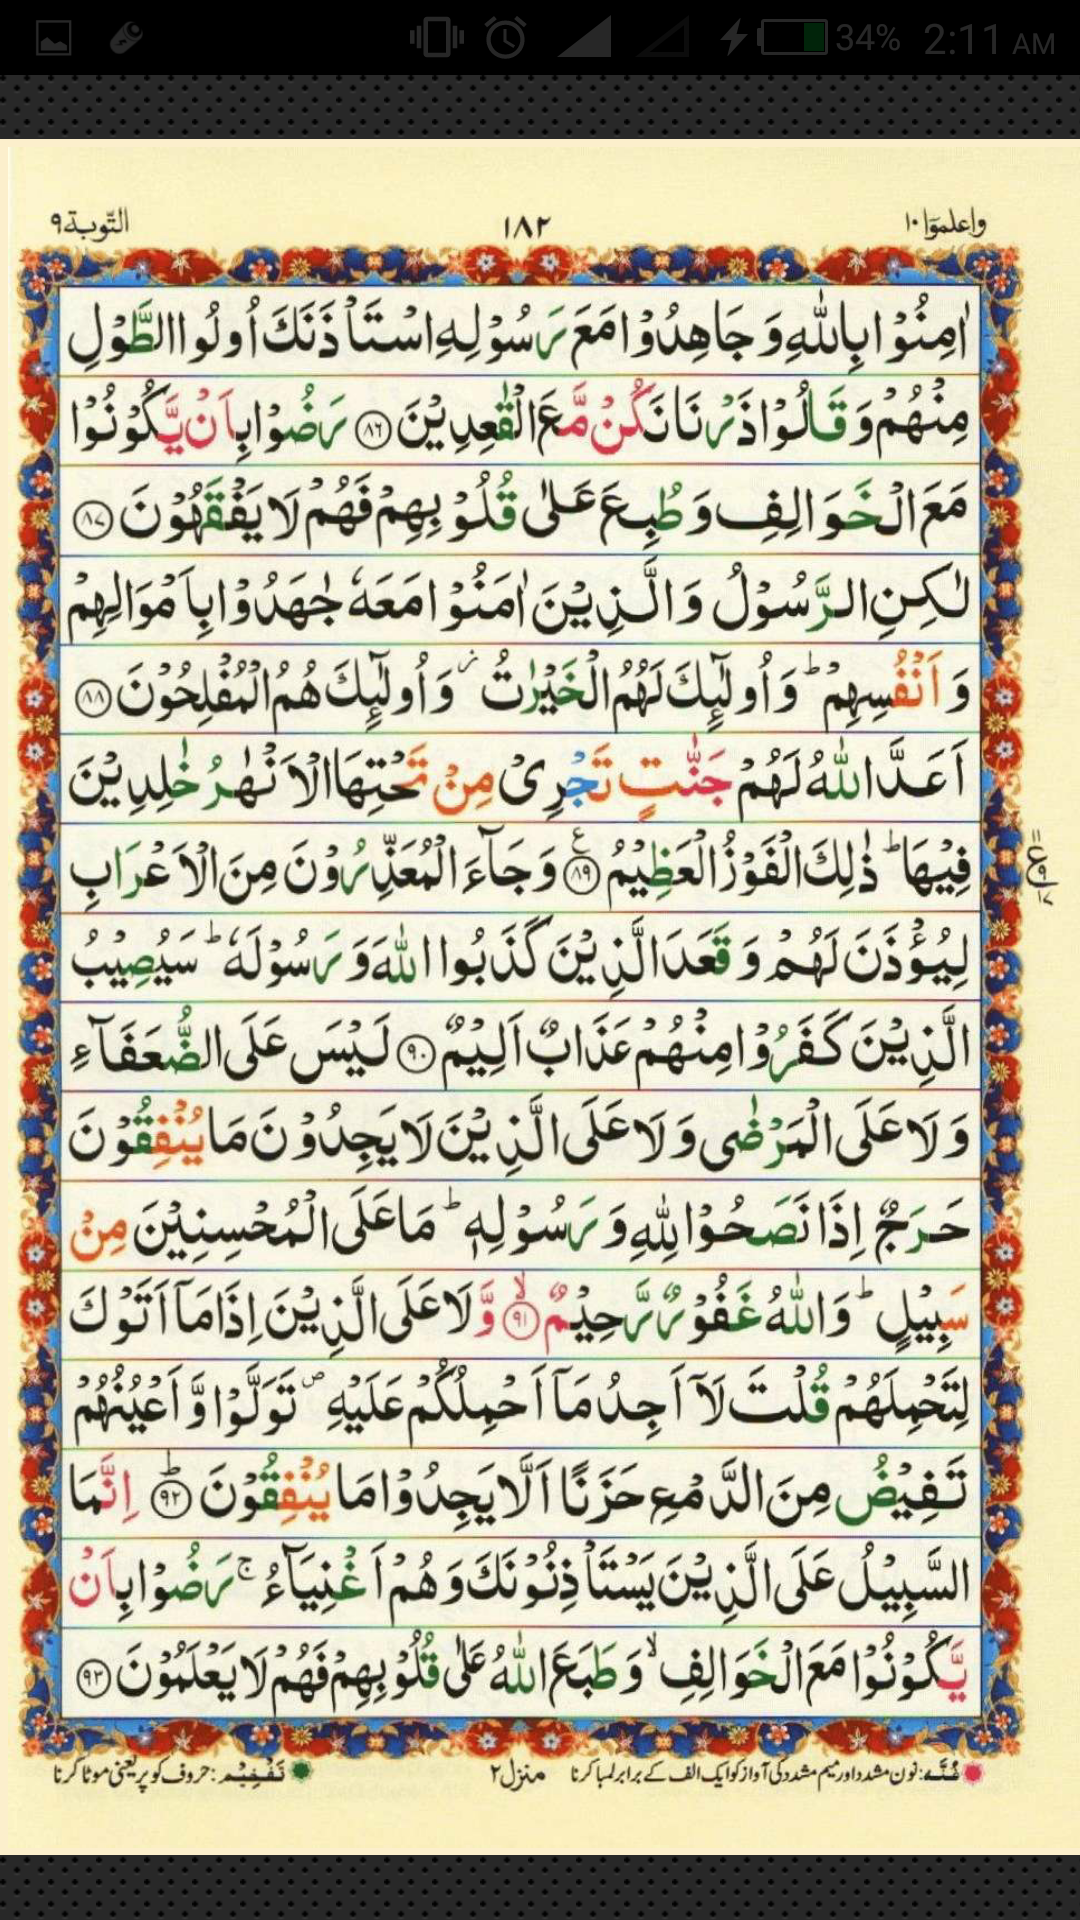 34% 2:11 AM
واعلموٓا ١٠ ١٨٢ التّوبة ٩
اٰمِنُوْا بِاللّٰهِ وَ جَاهِدُوْا مَعَ رَسُوْلِهِ اسْتَاْذَنَكَ اُولُوا الطَّوْلِ
مِنْهُمْ وَ قَالُوْا ذَرْنَا نَكُنْ مَّعَ الْقٰعِدِيْنَ ﴿٨٦﴾ رَضُوْا بِاَنْ يَّكُوْنُوْا
مَعَ الْخَوَالِفِ وَ طُبِعَ عَلٰى قُلُوْبِهِمْ فَهُمْ لَا يَفْقَهُوْنَ ﴿٨٧﴾
لٰكِنِ الرَّسُوْلُ وَ الَّذِيْنَ اٰمَنُوْا مَعَهٗ جٰهَدُوْا بِاَمْوَالِهِمْ
وَ اَنْفُسِهِمْ ؕ وَ اُولٰٓئِكَ لَهُمُ الْخَيْرٰتُ ؗ وَ اُولٰٓئِكَ هُمُ الْمُفْلِحُوْنَ ﴿٨٨﴾
اَعَدَّ اللّٰهُ لَهُمْ جَنّٰتٍ تَجْرِىْ مِنْ تَحْتِهَا الْاَنْهٰرُ خٰلِدِيْنَ
فِيْهَا ؕ ذٰلِكَ الْفَوْزُ الْعَظِيْمُ ﴿٨٩﴾ ع وَ جَآءَ الْمُعَذِّرُوْنَ مِنَ الْاَعْرَابِ
١١ ع ٩ ١٧
لِيُؤْذَنَ لَهُمْ وَ قَعَدَ الَّذِيْنَ كَذَبُوا اللّٰهَ وَ رَسُوْلَهٗ ؕ سَيُصِيْبُ
الَّذِيْنَ كَفَرُوْا مِنْهُمْ عَذَابٌ اَلِيْمٌ ﴿٩٠﴾ لَيْسَ عَلَى الضُّعَفَآءِ
وَ لَا عَلَى الْمَرْضٰى وَ لَا عَلَى الَّذِيْنَ لَا يَجِدُوْنَ مَا يُنْفِقُوْنَ
حَرَجٌ اِذَا نَصَحُوْا لِلّٰهِ وَ رَسُوْلِهٖ ؕ مَا عَلَى الْمُحْسِنِيْنَ مِنْ
سَبِيْلٍ ؕ وَ اللّٰهُ غَفُوْرٌ رَّحِيْمٌ ﴿٩١﴾ ۙ وَّ لَا عَلَى الَّذِيْنَ اِذَا مَاۤ اَتَوْكَ
لِتَحْمِلَهُمْ قُلْتَ لَاۤ اَجِدُ مَاۤ اَحْمِلُكُمْ عَلَيْهِ ۪ تَوَلَّوْا وَّ اَعْيُنُهُمْ
تَفِيْضُ مِنَ الدَّمْعِ حَزَنًا اَلَّا يَجِدُوْا مَا يُنْفِقُوْنَ ﴿٩٢﴾ ؕ اِنَّمَا
السَّبِيْلُ عَلَى الَّذِيْنَ يَسْتَاْذِنُوْنَكَ وَ هُمْ اَغْنِيَآءُ ۚ رَضُوْا بِاَنْ
يَّكُوْنُوْا مَعَ الْخَوَالِفِ ۙ وَ طَبَعَ اللّٰهُ عَلٰى قُلُوْبِهِمْ فَهُمْ لَا يَعْلَمُوْنَ ﴿٩٣﴾
غُنَّه: نون مشدد اور میم مشدد کی آواز کو ایک الف کے برابر لمبا کرنا منزل ٢ تَفْخِيْم: حروف کو پُر یعنی موٹا کرنا